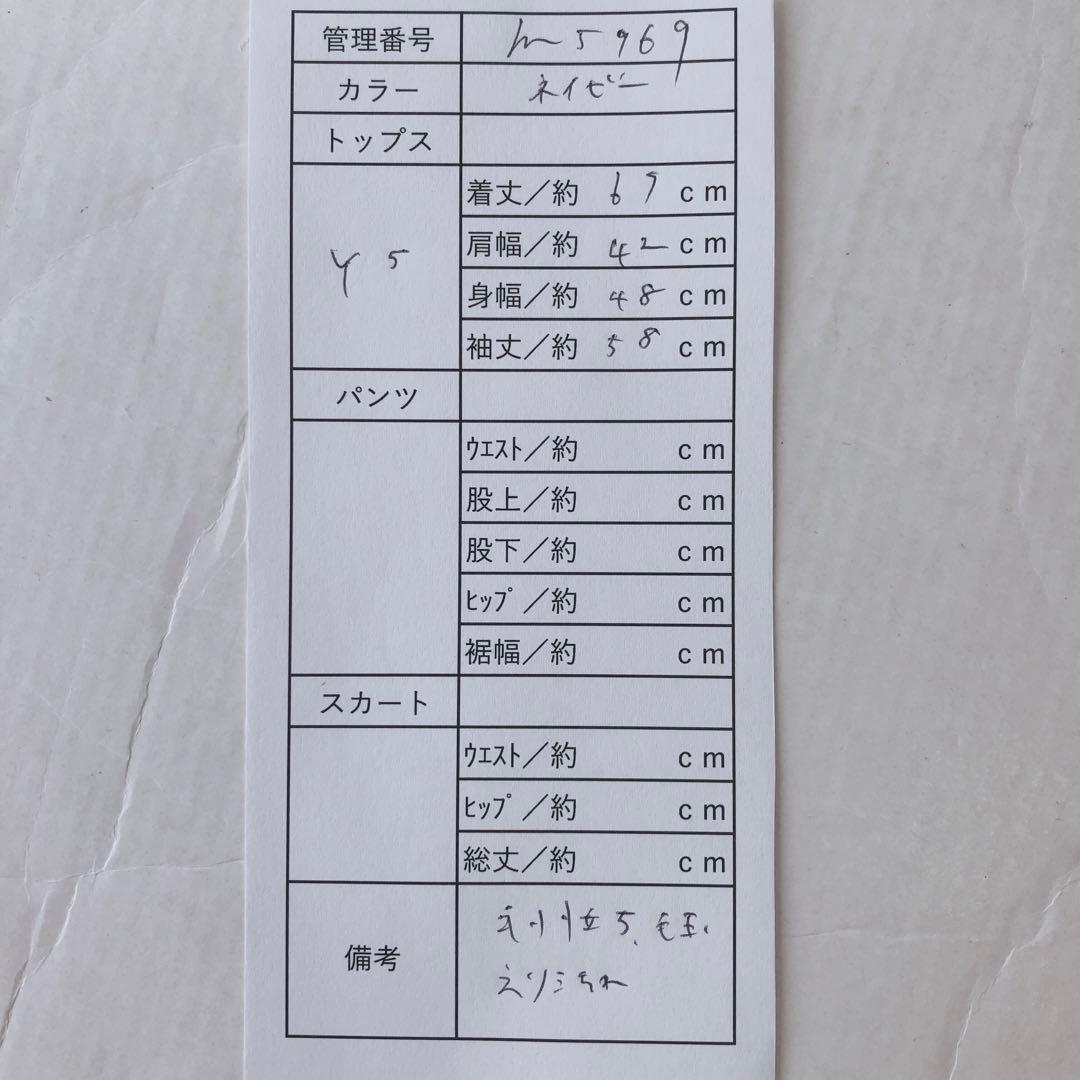 管理番号 m5969
カラー ネイビー
トップス
Y5
着丈／約 69 cm
肩幅／約 42 cm
身幅／約 48 cm
袖丈／約 58 cm
パンツ
ｳｴｽﾄ／約 cm
股上／約 cm
股下／約 cm
ﾋｯﾌﾟ／約 cm
裾幅／約 cm
スカート
ｳｴｽﾄ／約 cm
ﾋｯﾌﾟ／約 cm
総丈／約 cm
備考
毛玉、